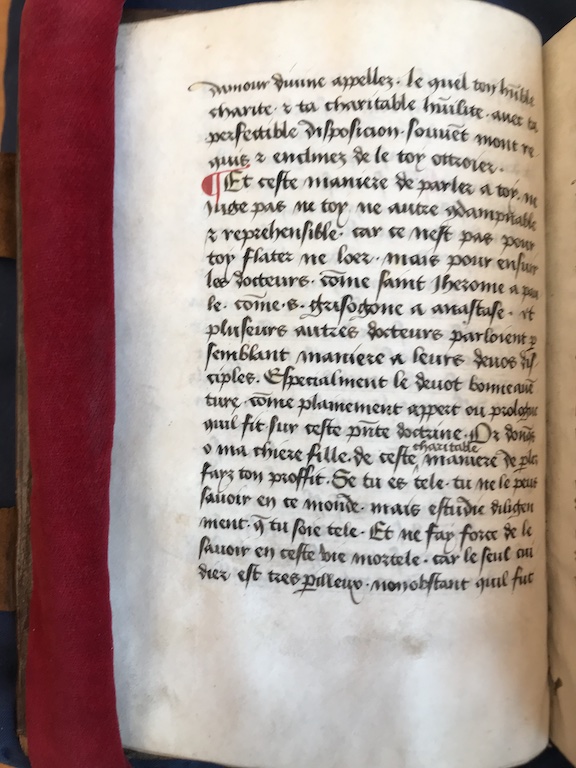 damour diuine appellez. le quel ton hūble
charite. ⁊ ta charitable hūilite. auec ta
perfectible disposicion. souuēt mont re
quis ⁊ enclinez de le toy ottroier.
¶ Et ceste maniere de parler a toy. ne
iuge pas ne toy ne autre ꝯdampnable
⁊ reprehensible. car ce nest pas pour
toy flater ne loer. mais pour ensuir
les docteurs. cōme saint Jherome a pau
le. cōme .s. grisogone a anastase. et
plusieurs autres docteurs parloient p
semblant maniere a leurs deuos dis
ciples. Especialment le deuot bonneauē
ture. cōme plainement appert ou prologue
quil fit sur ceste pn̄te doctrine. Or donq̄s
o ma chiere fille. de ceste charitable maniere de pler
fayz ton proffit. Se tu es tele. tu ne le peus
sauoir en ce monde. mais estudie diligen
ment. q̄ tu soie tele. Et ne fay force de le
sauoir en ceste vie mortele. car le seul cui
dier est tres ꝑilleux. nonobstant quil fut